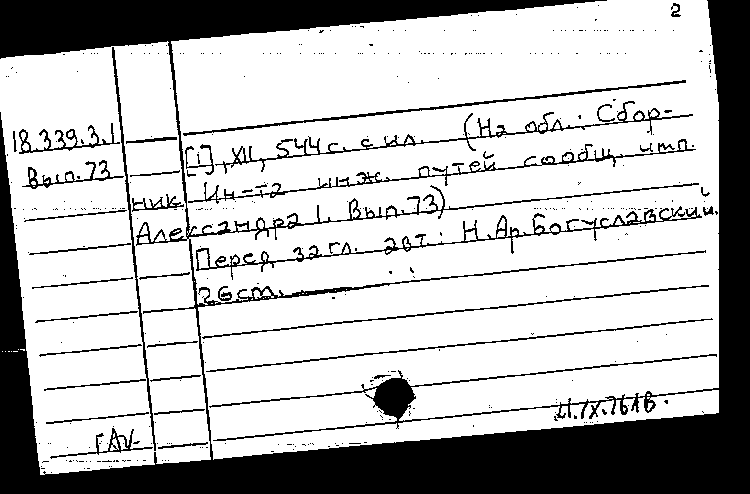 2
18.339.3.1
Вып.73
[1], XII, 544 с. с ил. (На обл.: Сбор-
ник Ин-та инж. путей сообщ. имп.
Александра I. Вып.73).
Перед загл. авт: Н.Ар.Богуславский.
26 см.
ГАУ-